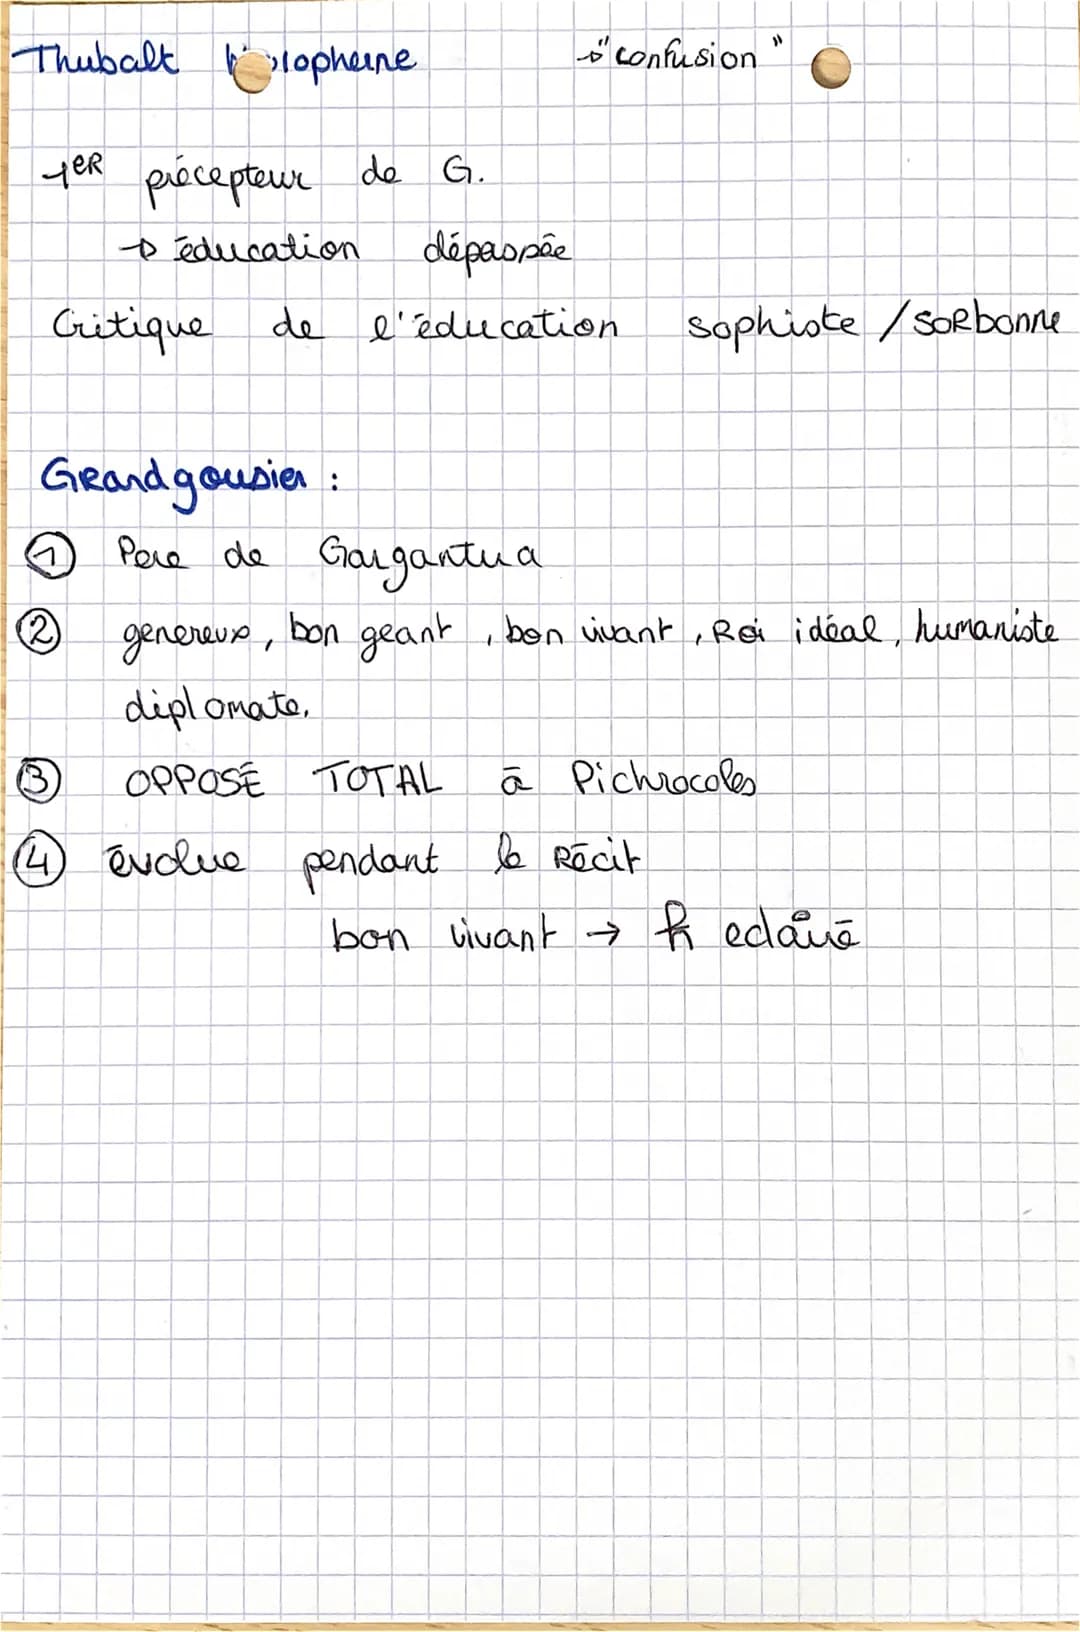 Thubalt → "confusion"
1ER précepteur de G.
→ éducation dépassée
Critique de l'éducation sophiste / SORbonne
GRandgousier :
① Pere de Gargantua
② genereux, bon geant, bon vivant, Roi idéal, humaniste
diplomate.
③ OPPOSÉ TOTAL à Pichrocoles
④ évolue pendant le Récit
bon vivant → R eclairé